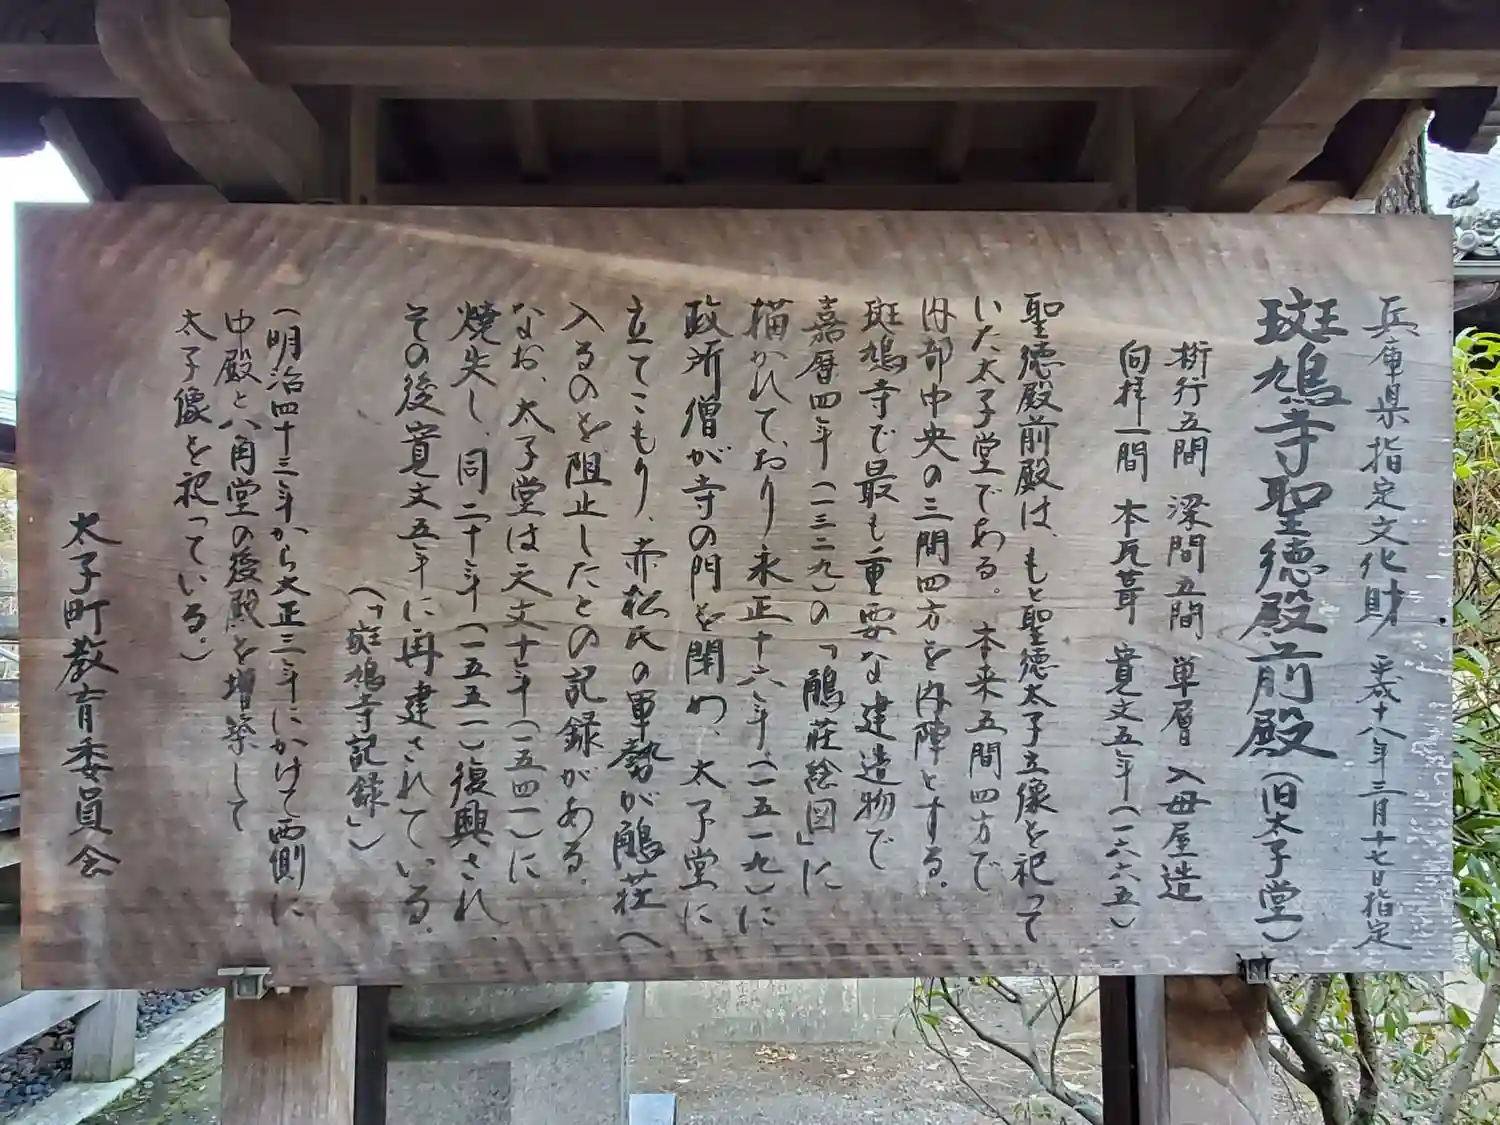 兵庫県指定文化財 平成十八年三月十七日指定
斑鳩寺聖徳殿前殿(旧太子堂)
桁行五間 梁間五間 単層 入母屋造
向拝一間 本瓦葺 寛文五年(一六六五)
聖徳殿前殿は、もと聖徳太子立像を祀って
いた太子堂である。本来五間四方で
内部中央の三間四方を内陣とする。
斑鳩寺で最も重要な建造物で
嘉暦四年(一三二九)の「鵤荘絵図」に
描かれており永正十六年(一五一九)に
政所僧が寺の門を閉め、太子堂に
立てこもり、赤松氏の軍勢が鵤荘へ
入るのを阻止したとの記録がある。
なお、太子堂は天文十年(一五四一)に
焼失し、同二十年(一五五一)復興され、
その後寛文五年に再建されている。
(「斑鳩寺記録」)
(明治四十三年から大正三年にかけて西側に
中殿と八角堂の後殿を増築して
太子像を祀っている。)
太子町教育委員会